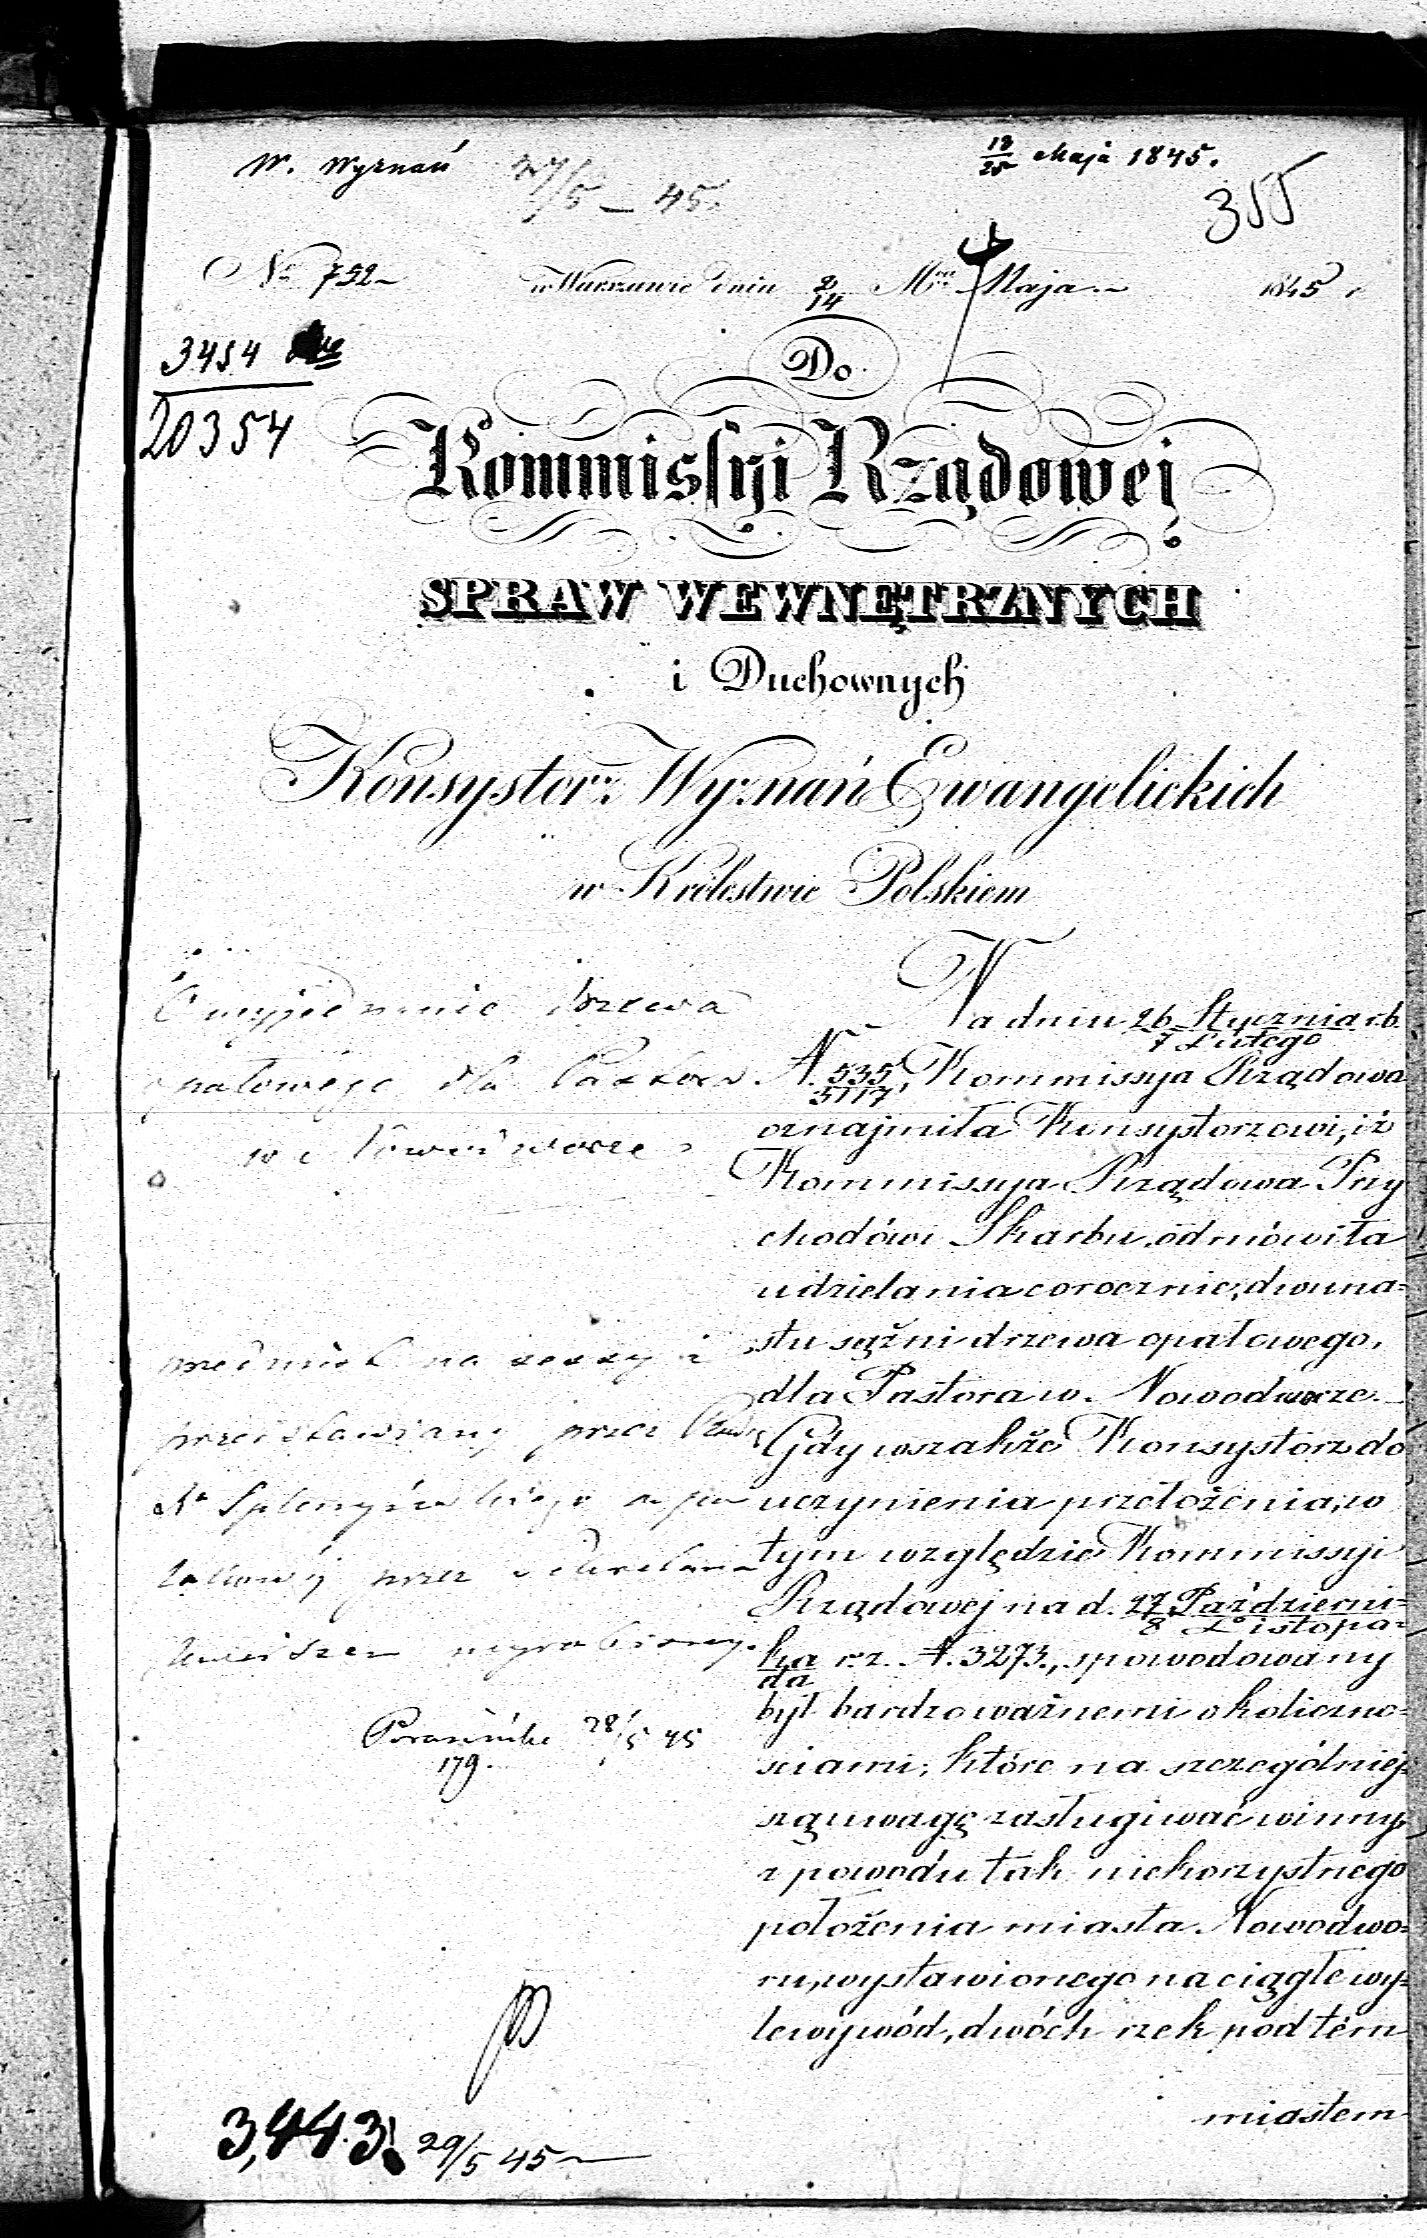 W. Wyznań 27/5 – 45.
13/25 Maja 1845.
355
No 752
w Warszawie dnia 2/14 Mca Maja 1845 r
3454
20354
Do
Kommissyi Rządowej
SPRAW WEWNĘTRZNYCH
i Duchownych
Konsystorz Wyznań Ewangelickich
w Królestwie Polskiem
O wyjednanie drzewa
opałowego dla Pastora
w Nowodworze
przedmiot na sessyi
przedstawiany przez
przez
28/5 45
179.
Na dniu 26 Stycznia / 7 Lutego r.b.
N. 535/5117, Kommissya Rządowa
oznajmiła Konsystorzowi, iż
Kommissya Rządowa Przy
chodów i Skarbu, odmówiła
udzielania corocznie, dwuna=
stu sążni drzewa opałowego,
dla Pastora w Nowodworze.
Gdy wszakże Konsystorz do
uczynienia przełożenia, w
tym względzie Kommissyi
Rządowej na d. 27 Październi= / 8 Listopa=
ka / da r.z. N. 3273., spowodowany
był bardzo ważnemi okoliczno=
sciami, które na szczególniej=
szą uwagę zasługiwać winny,
z powodu tak niekorzystnego
położenia miasta Nowodwo=
ru, wystawionego na ciągłe wy=
lewy wód, dwóch rzek pod tém
miastem
3,443.
29/5 45